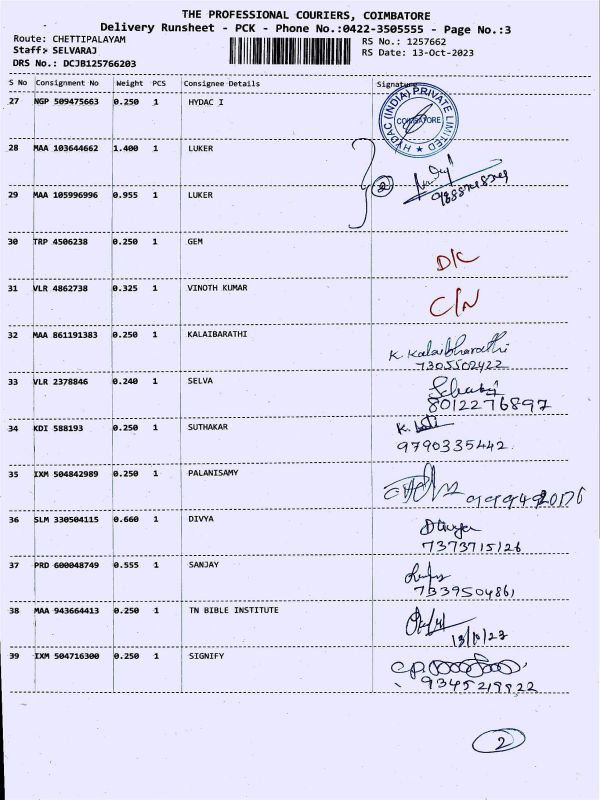 THE PROFESSIONAL COURIERS, COIMBATORE
Delivery Runsheet - PCK - Phone No.:0422-3505555 - Page No.:3
Route: CHETTIPALAYAM
RS No.: 1257662
Staff: SELVARAJ
RS Date: 13-Oct-2023
DRS No.: DCJB125766203
S No Consignment No Weight PCS Consignee Details Signature
27 NGP 509475663 0.250 1 HYDAC I
HYDAC (INDIA) PRIVATE LIMITED ★
COIMBATORE
28 MAA 103644662 1.400 1 LUKER
2
29 MAA 105996996 0.955 1 LUKER
30 TRP 4506238 0.250 1 GEM
D/C
31 VLR 4862738 0.325 1 VINOTH KUMAR
C/N
32 MAA 861191383 0.250 1 KALAIBARATHI
K. Kalaibharathi
7305502422
33 VLR 2378846 0.240 1 SELVA
8012276897
34 KDI 588193 0.250 1 SUTHAKAR
9790335442.
35 IXM 504842989 0.250 1 PALANISAMY
36 SLM 330504115 0.660 1 DIVYA
Divya
7373715126
37 PRD 600048749 0.555 1 SANJAY
7339504861
38 MAA 943664413 0.250 1 TN BIBLE INSTITUTE
13/10/23
39 IXM 504716300 0.250 1 SIGNIFY
9345219822
2